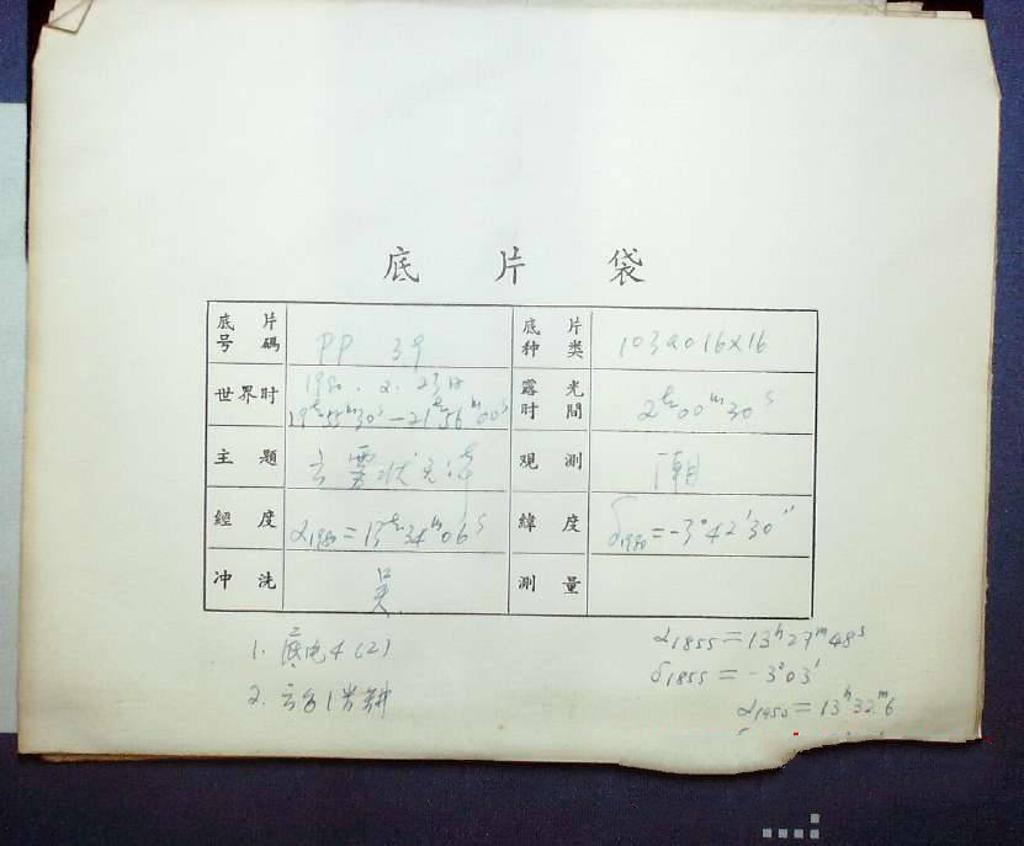 底片袋
底片号碼 PP 39 底片种类 103aO16×16
世界时 1980.2.23日 19h55m30s—21h56m00s 露光时間 2h00m30s
主題 观測
經度 α1980=13h34m06s 緯度 δ1980=-3°42′30″
冲洗 吴 測量
1.
2.
α1855=13h27m48s
δ1855=-3°03′
α1950=13h32m6